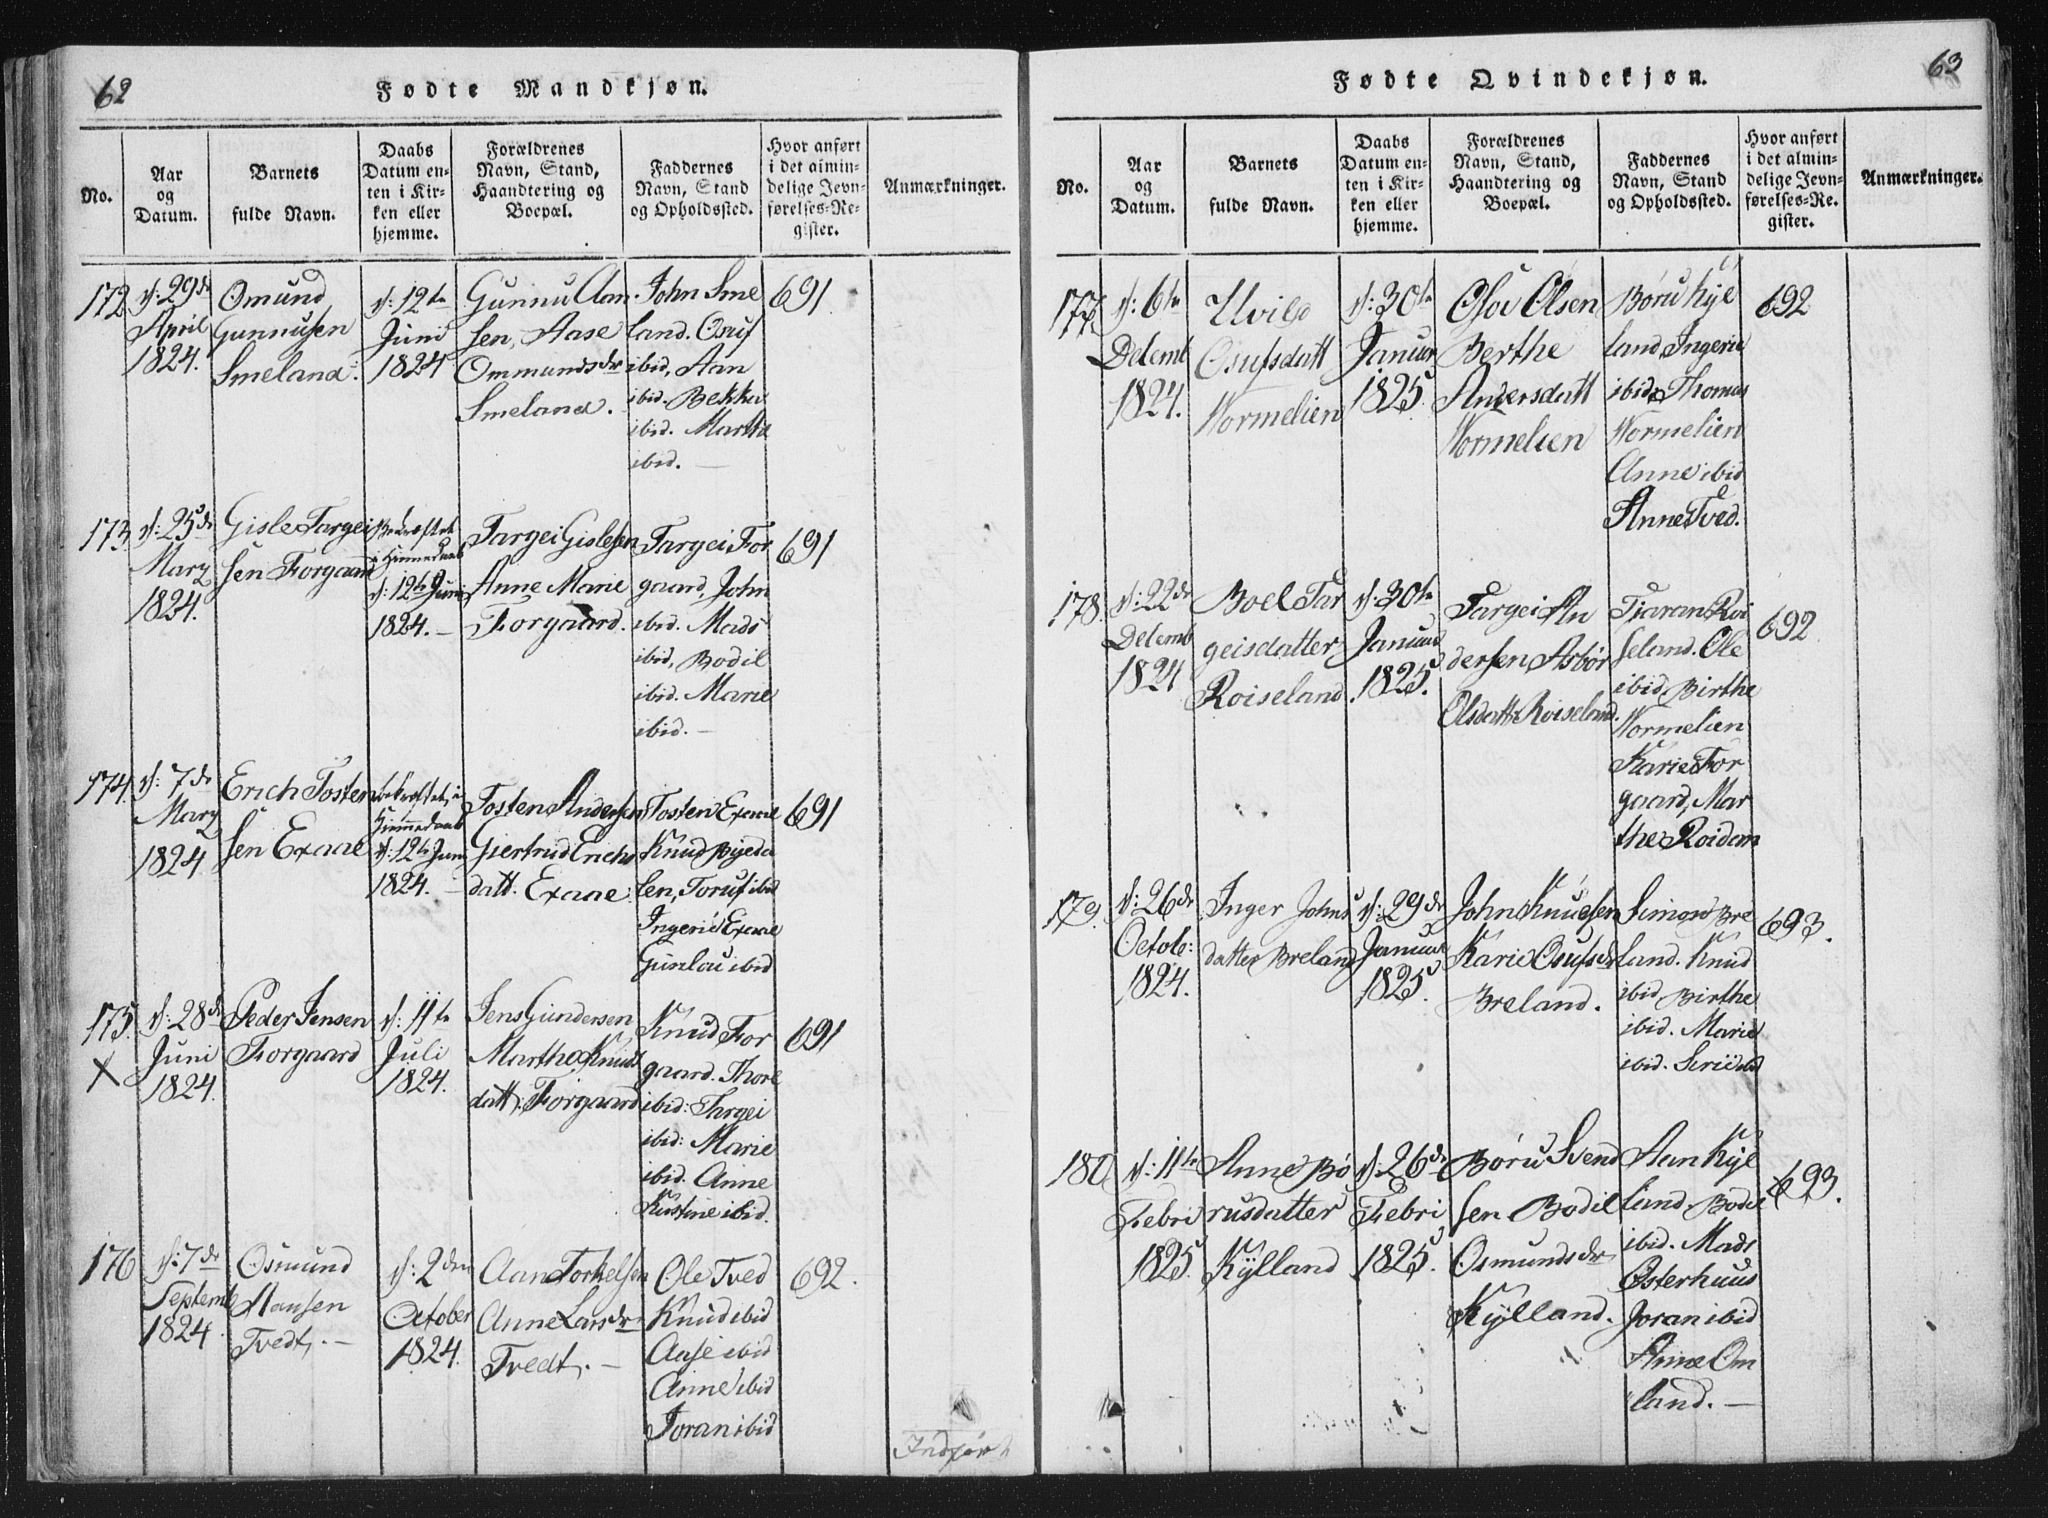 62
Fødte Mandkjøn.
No.
Aar
og
Datum.
Barnets
fulde Navn.
Daabs
Datum en-
ten i Kir-
ken eller
hjemme.
Forældrenes
Navn, Stand,
Haandtering og
Boepæl.
Faddernes
Navn, Stand
og Opholdssted.
Hvor anført
i det almin-
delige Jevn-
førelses-Re-
gister.
Anmærkninger.
172
d: 29de
April
1824.
Omund
Gunnusen
Smeland.
d: 12te
Juni
1824
Gunnu Aan
sen, Aase
Ommundsdr
Smeland.
John Sme
land. Osuf
ibid, Aan
ibid. Bekka
ibid. Martha
ibid. —
691
173.
d: 25de
Marz
1824.
Gisle Targei
sen Forgaard
i Hjemmedaab
d: 12te Juni
1824. —
Targei Gislesen
Anne Marie
Forgaard.
Targei For
gaard, John
ibid. Mads
ibid, Bodil
ibid. Marie
ibid. —
691
174.
d: 7de
Marz
1824
Erich Tosten
sen Exaae
bekræftet i
Hjemmedaab
d: 12te Juni
1824. —
Tosten Andersen
Giertrud Erichs
datt. Exaae.
Tosten Exaae
Knud Bijeda
len, Toruf ibid
Ingerid Exaae
Gunlau ibid
691
175.
X
d: 28de
Juni
1824.
Peder Jensen
Forgaard
d: 11te
Juli
1824.
Jens Gundersen
Marthe Knuds
datt. Forgaard
Knud For
gaard. Thore
ibid: Targei
ibid: Marie
ibid. Anne
Kirstine ibid.
691
176
d: 7de
Septemb
1824.
Osmund
Aansen
Tvedt. —
d: 2den
October
1824.
Aan Torkelsen
Anne Larsdr
Tvedt. —
Ole Tved
Knud ibid
Aase ibid
Anne ibid
Joran ibid
692.
Indført
63
Fødte Qvindekjøn.
No.
Aar
og
Datum.
Barnets
fulde Navn.
Daabs
Datum en-
ten i Kir-
ken eller
hjemme.
Forældrenes
Navn, Stand,
Haandtering og
Boepæl.
Faddernes
Navn, Stand
og Opholdssted.
Hvor anført
i det almin-
delige Jevn-
førelses-Re-
gister.
Anmærkninger.
177.
d: 6te
Decemb
1824.
Osufsdatt
Wormelien
d: 30te
Januar
1825.
Osov Olsen
Berthe
Andersdatt
Wormelien
Børu Kyl
land, Ingerid
ibid Thomas
Wormelien
Anne ibid
Anne Tved.
692
178.
d: 22de
Decemb
1824
Boel Tar
geisdatter
Roiseland
d: 30te
Januar
1825.
Targei An
dersen Asbør
Olsdatt Roiseland.
Tjaran Roi
seland. Ole
ibid, Birthe
Wormelien
Karie For
gaard, Mar
the Roidam
692
179.
d: 26de
Octob:
1824.
Inger Johns
datter Breland
d: 29de
Januar
1825.
John Knudsen
Karie Osufsdr
Breland.
Simon Bre
land. Knud
ibid, Birthe
ibid. Marie
ibid. Siri ibid
693.
180
d: 11te
Febri
1825.
Anne Bø
rusdatter
Kylland
d: 26de
Febri
1825.
Børu Svend
sen Bodil
Osmundsdr
Kylland.
Aan Kyl
land. Bodil
ibid. Mads
Osterhuus
Joran ibid
Anne Om
land. —
693.